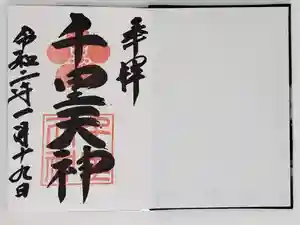 奉拝
千里天神
令和二年一月十九日